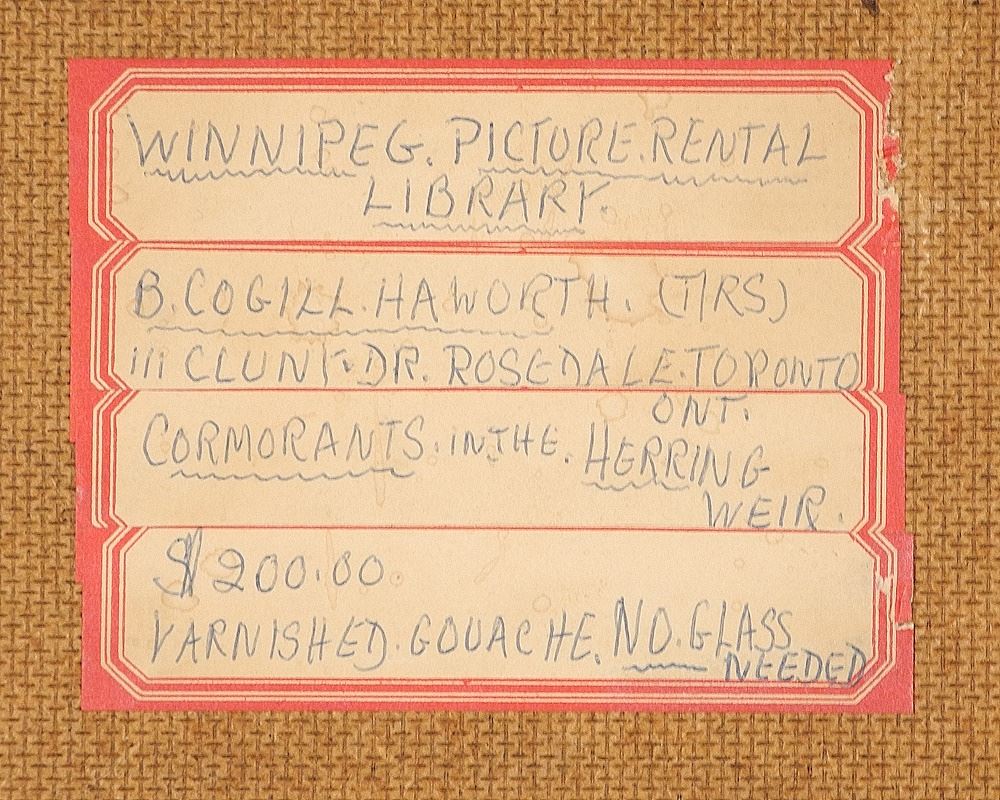 WINNIPEG. PICTURE. RENTAL
LIBRARY.
B. COGILL. HAWORTH. (MRS)
111 CLUNY. DR. ROSEDALE. TORONTO
ONT.
CORMORANTS. IN. THE. HERRING
WEIR.
$200.00.
VARNISHED. GOUACHE. NO. GLASS
NEEDED